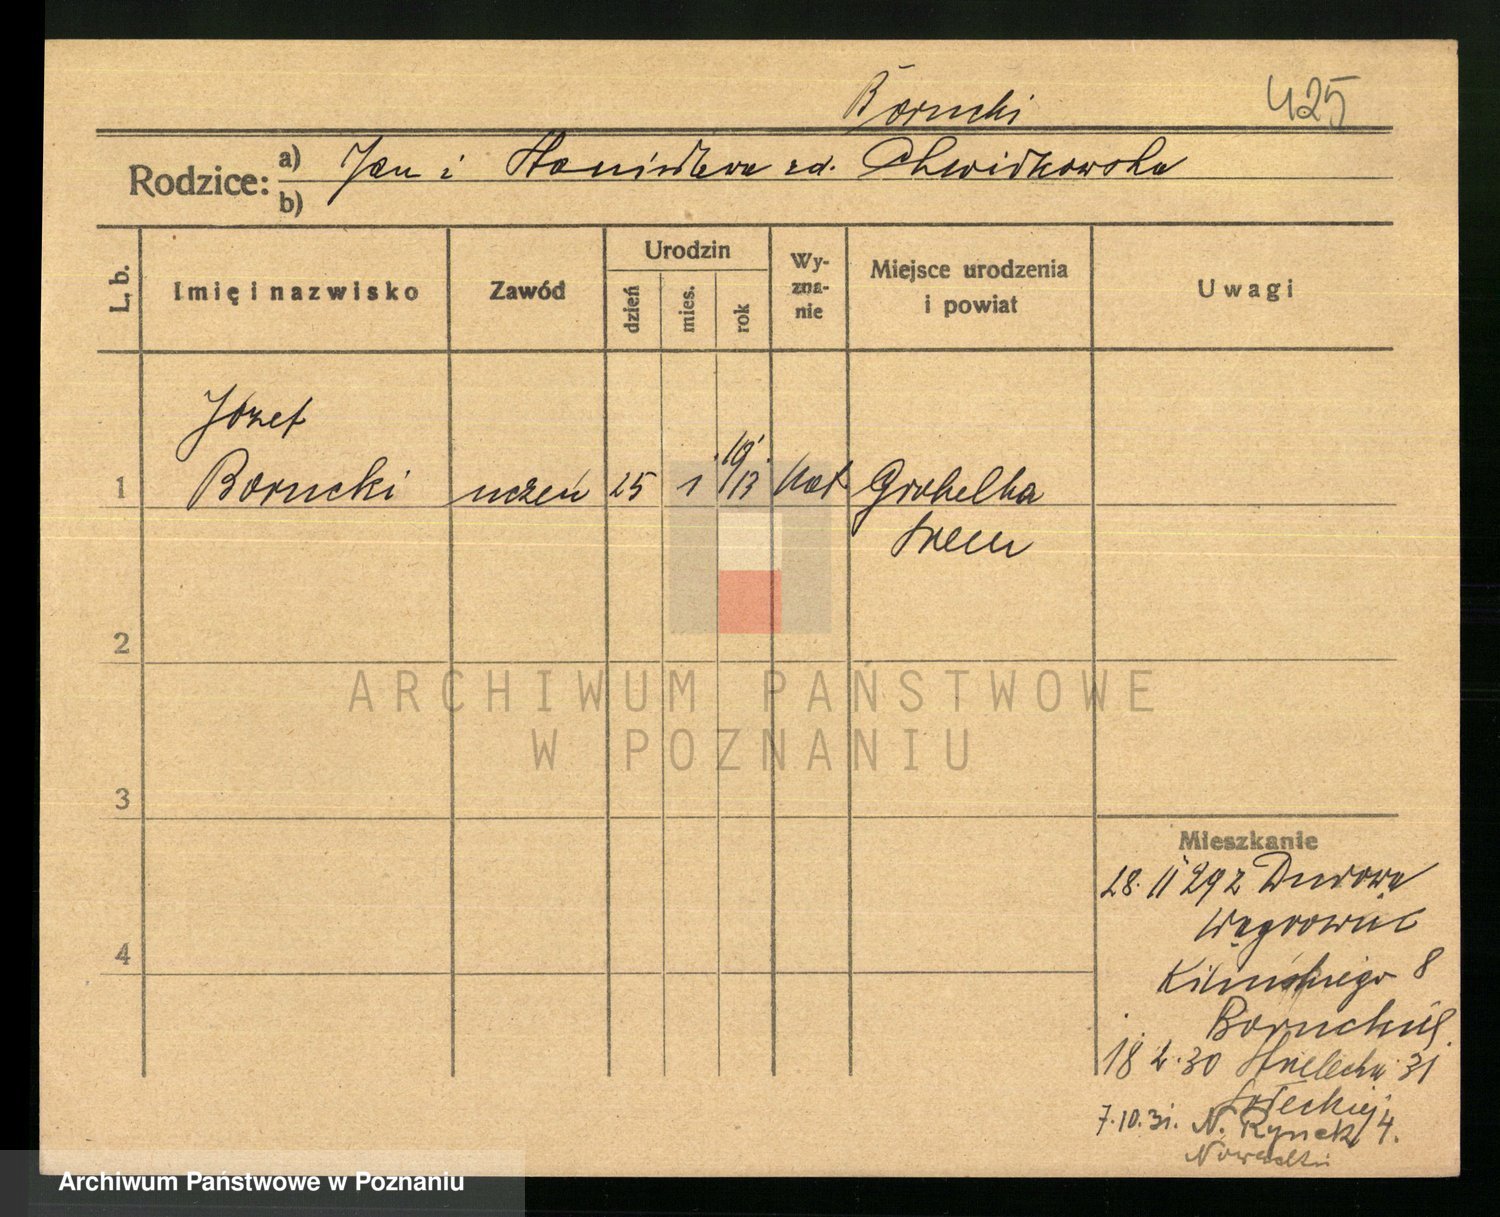 Borucki
425
Rodzice: a) Jan i Stanisława zd. Chwiłkowska
b)
L. b.
Imię i nazwisko
Zawód
Urodzin
dzień
mies.
rok
Wy-
zna-
nie
Miejsce urodzenia
i powiat
Uwagi
Józef
1 Borucki uczeń 25 1 19/13 kat Grobelka
Śrem
2
3
4
ARCHIWUM PAŃSTWOWE
W POZNANIU
Mieszkanie
28. II 29 z Durowa
Wągrowiec
Kilińskiego 8
18 2.30 Strzelecka 31
7.10.31. N. Rynek 4.
Archiwum Państwowe w Poznaniu